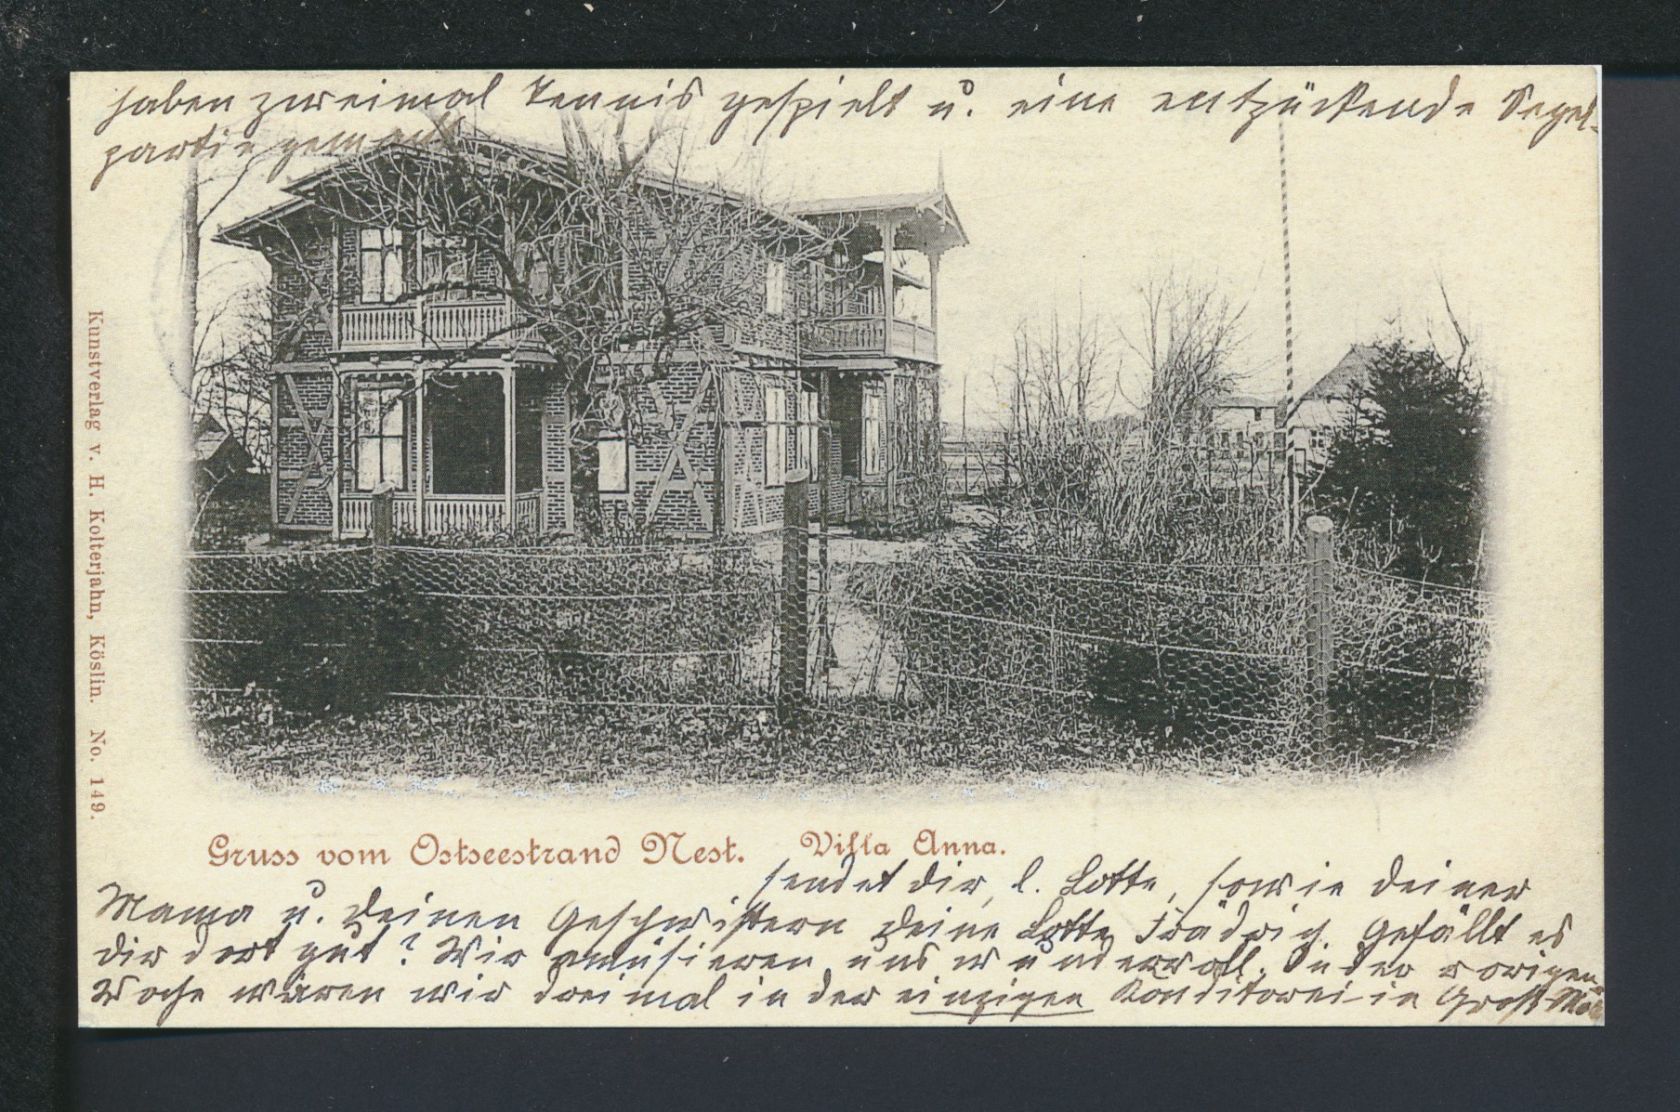 haben zweimal Tennis gespielt u. eine entzückende Segel-
partie gemacht
Kunstverlag v. H. Kolterjahn, Köslin. No. 149.
Gruss vom Ostseestrand Nest. Villa Anna.
sendet dir, l. Lotte, sowie deiner
Mama u. deinen Geschwistern deine Lotte Frädrich. Gefällt es
dir dort gut? Wir amüsieren uns wundervoll. In der vorigen
Woche wären wir dreimal in der einzigen Konditorei in Groß-